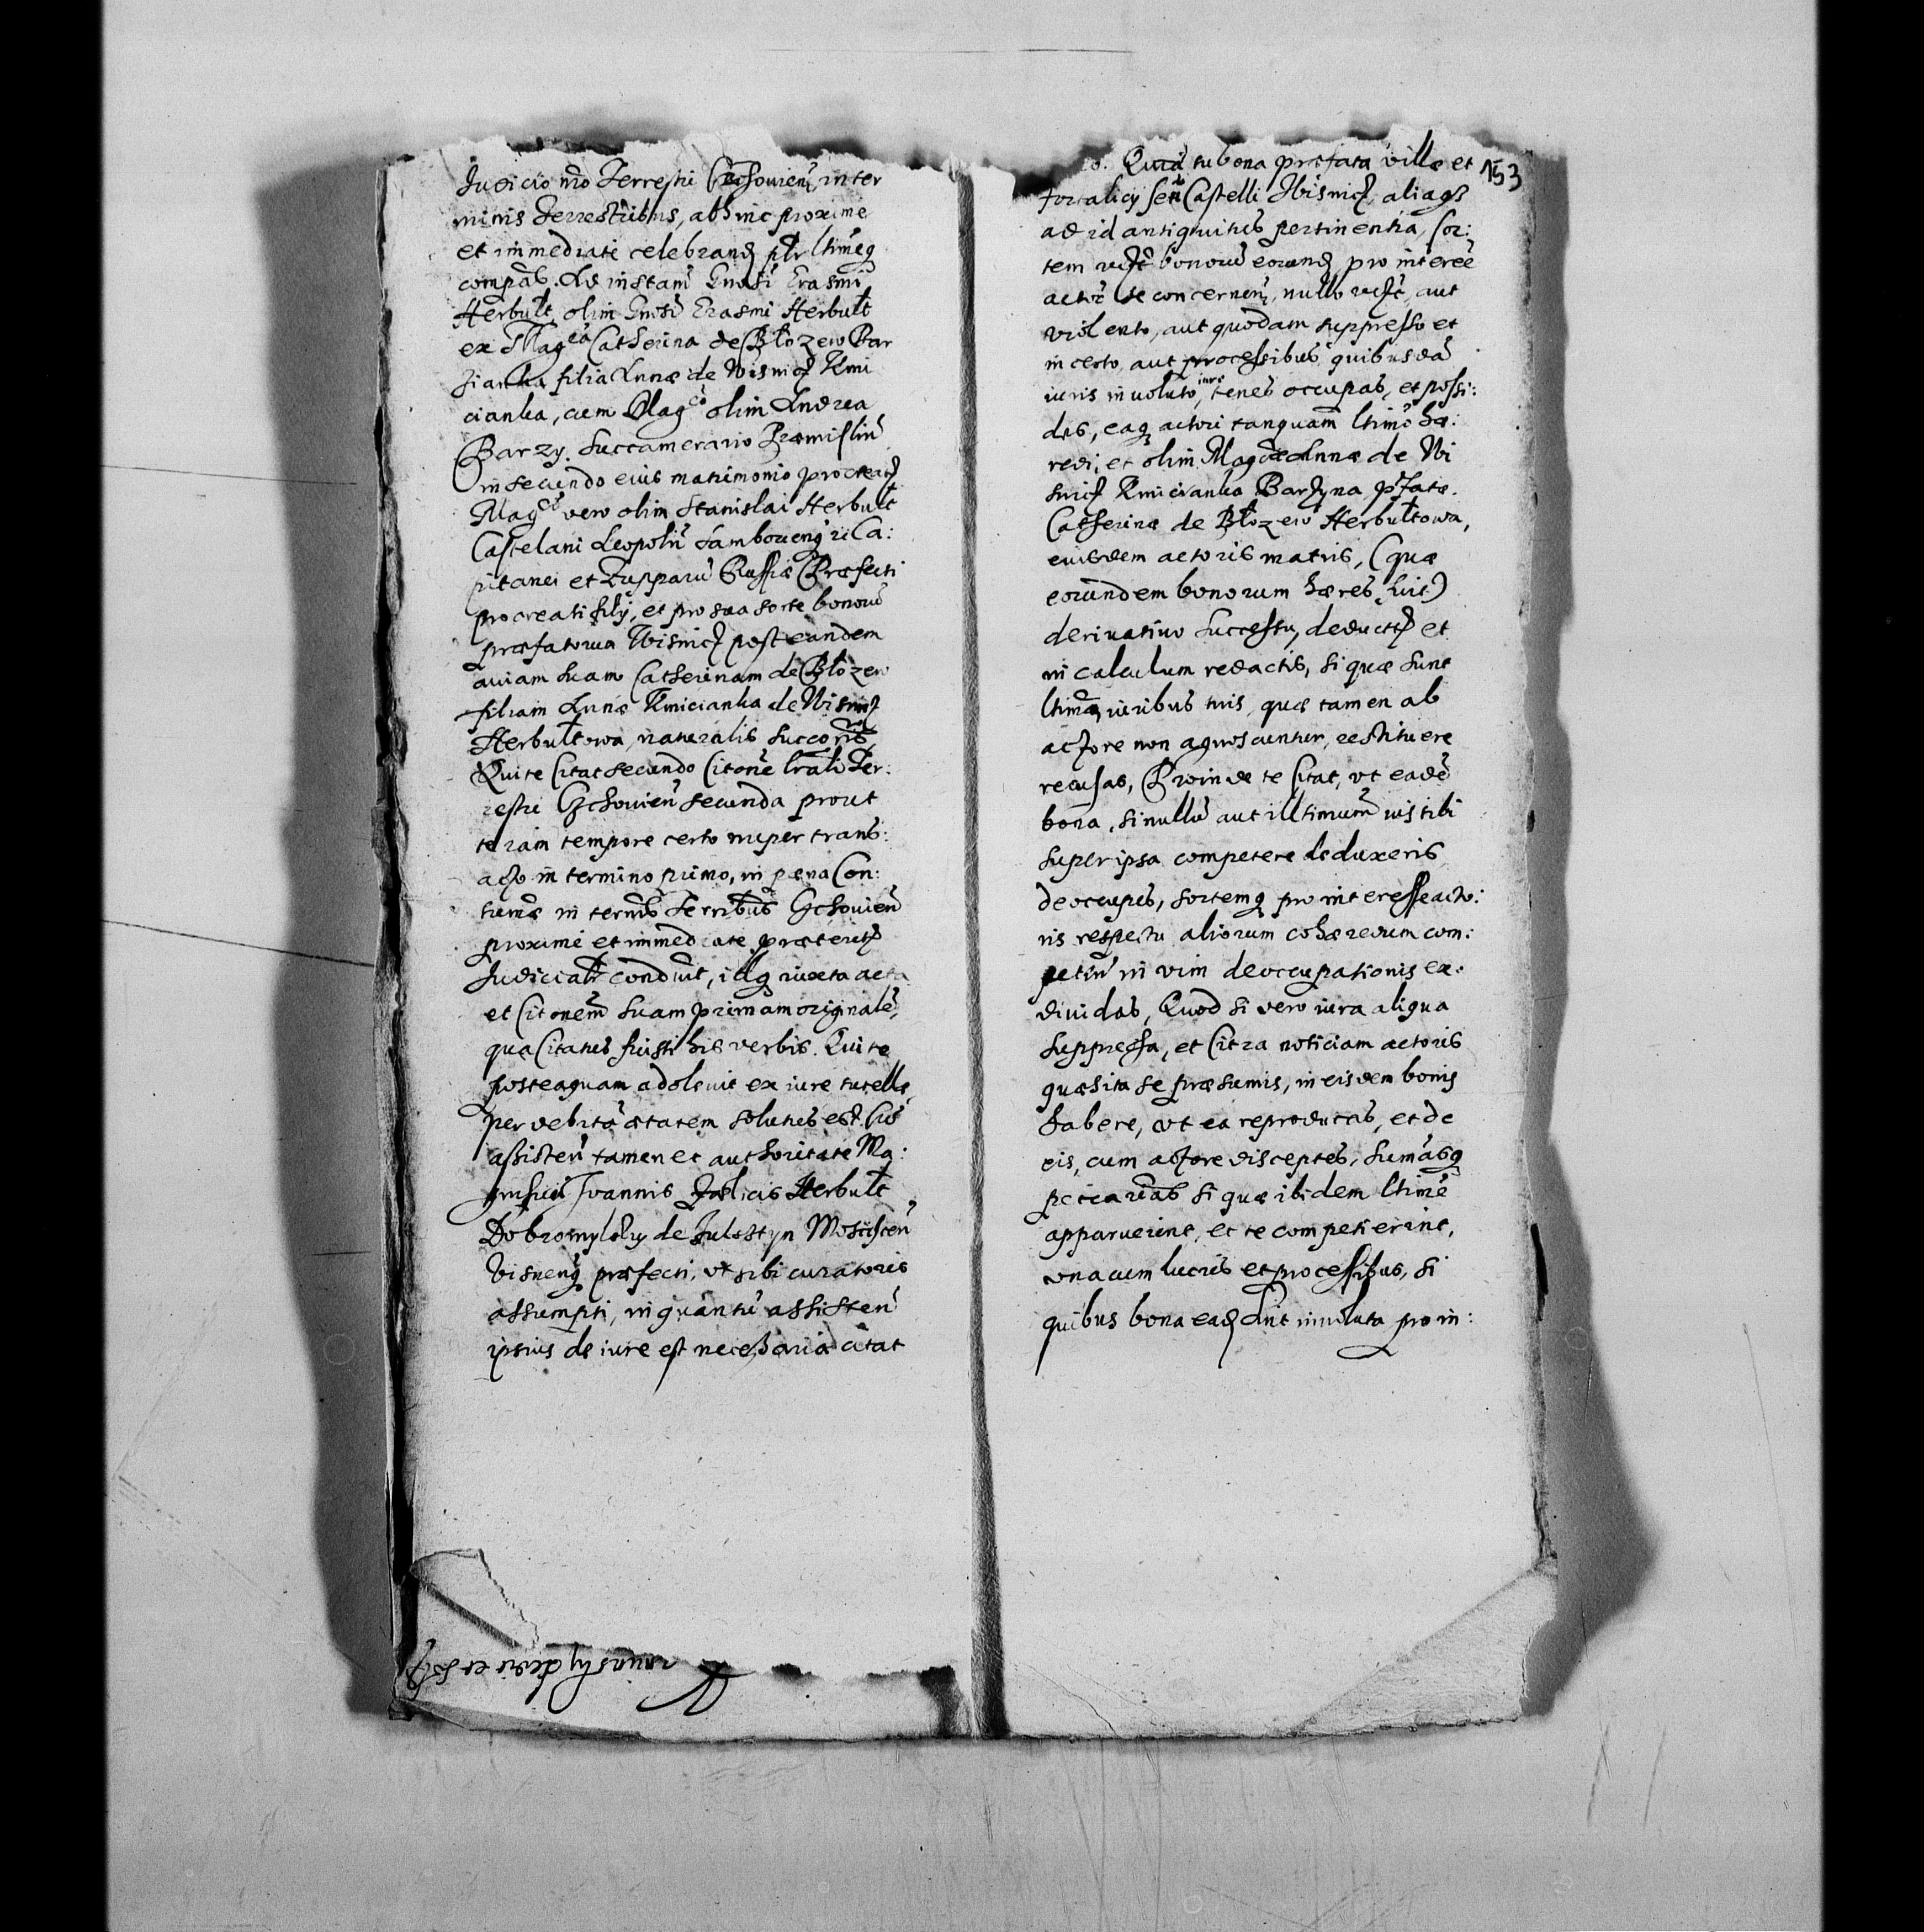 Judicio nrō Terrestri Czchouien̄, in ter
minis Terrestribus, abhinc proxime
et immediate celebrand, pltr ltimeq
compas. Ad instam Gnosi Erasmi
Herbult, olim Gnosi Erasmi Herbult
ex Mag̃ca Catherina de Błozew Bar
zianka filia Annæ de Wisnicz Kmi
cianka, cum Mag̃co olim Andrea
Barzy. Succamerario Præmislien̄
in secundo eius matrimonio procreatȝ
Mag̃ci vero olim Stanislai Herbult
Castelani Leopolien̄ Samborienq̃ ri Ca:
pitanei et Zupparū Russiæ Præfecti
procreati filij, et pro sua sorte bonorū
præfatorum Wisnicz post eandem
auiam suam Catherinam de Błozew
filiam Annæ Kmicianka de Wisnicz
Herbultowa, naturalis succoris
Qui te Citat secundo Citone lrali Ter:
restri Czchouien̄ secunda prout
te iam tempore certo nuper trans:
acto in termino primo, in pena Con:
tumæ in ternis terribus Czchouien̄
proxime et immediate præteritȝ
Judicialr condnit, idq̃ iuxta acta
et Citonem suam primam originalē,
qua Citatus fuisti his verbis. Qui te
posteaquam adoleuit ex iure tutellæ
per debitā ætatem solutus est. Cū
assisten̄ tamen et authoritate Ma:
gnifici Joannis Felicis Herbult
Dobromylsky de Fulsztyn Mosciscen̄
Visnenq̃ præfecti, vt sibi curatoris
assumpti, in quantū assisten̄
ipsius de iure est necessaria citat
153
Quia tu bona præfata villæ et
fortalicij seu Castelli Wisnicz, aliaqȝ
ad id antiquitus pertinentia, sor:
tem vest̃ bonorū eorund, pro intereē
actor se concernen̄, nullo vest̃, aut
violento, aut quodam suppresso et
incerto, aut processibus quibusdā
iuris inuoluto, iure tenes occupas, et possi:
des, eaq̃ actori tanquam ltimo hæ:
redi, et olim Mag̃cæ Annæ de Wi
snicz Kmicianka Barzyna pfatæ.
Catherinæ de Błozew Herbultowa,
eiusdem actoris matris, (quæ
eorundem bonorum hæres fuit)
deriuatiuo successu, deductȝ et
in calculum redactis, si quæ sunt
ltimā, iuribus tuis, quæ tamen ab
actore non agnoscuntur, restituere
recusas, Proinde te Citat, vt eadē
bona, si nullū aut illtimum ius tibi
super ipsa competere deduxeris
deoccupes, sortemq̃ pro interesse acto:
ris respectu aliorum cohæredum com:
peten̄ in vim deoccupationis ex:
diuidas, Quod si vero iura aliqua
suppressa, et Citra noticiam actoris
quæsita se præsumis, in eisdem bonis
habere, vt ea reproducas, et de
eis, cum actore disceptes, sumāsq̃
pecarias si quæ ibidem ltimē
apparuerint, et te competierint,
vna cum lucris et processibus, si
quibus bona ead sint inuoluta pro in: